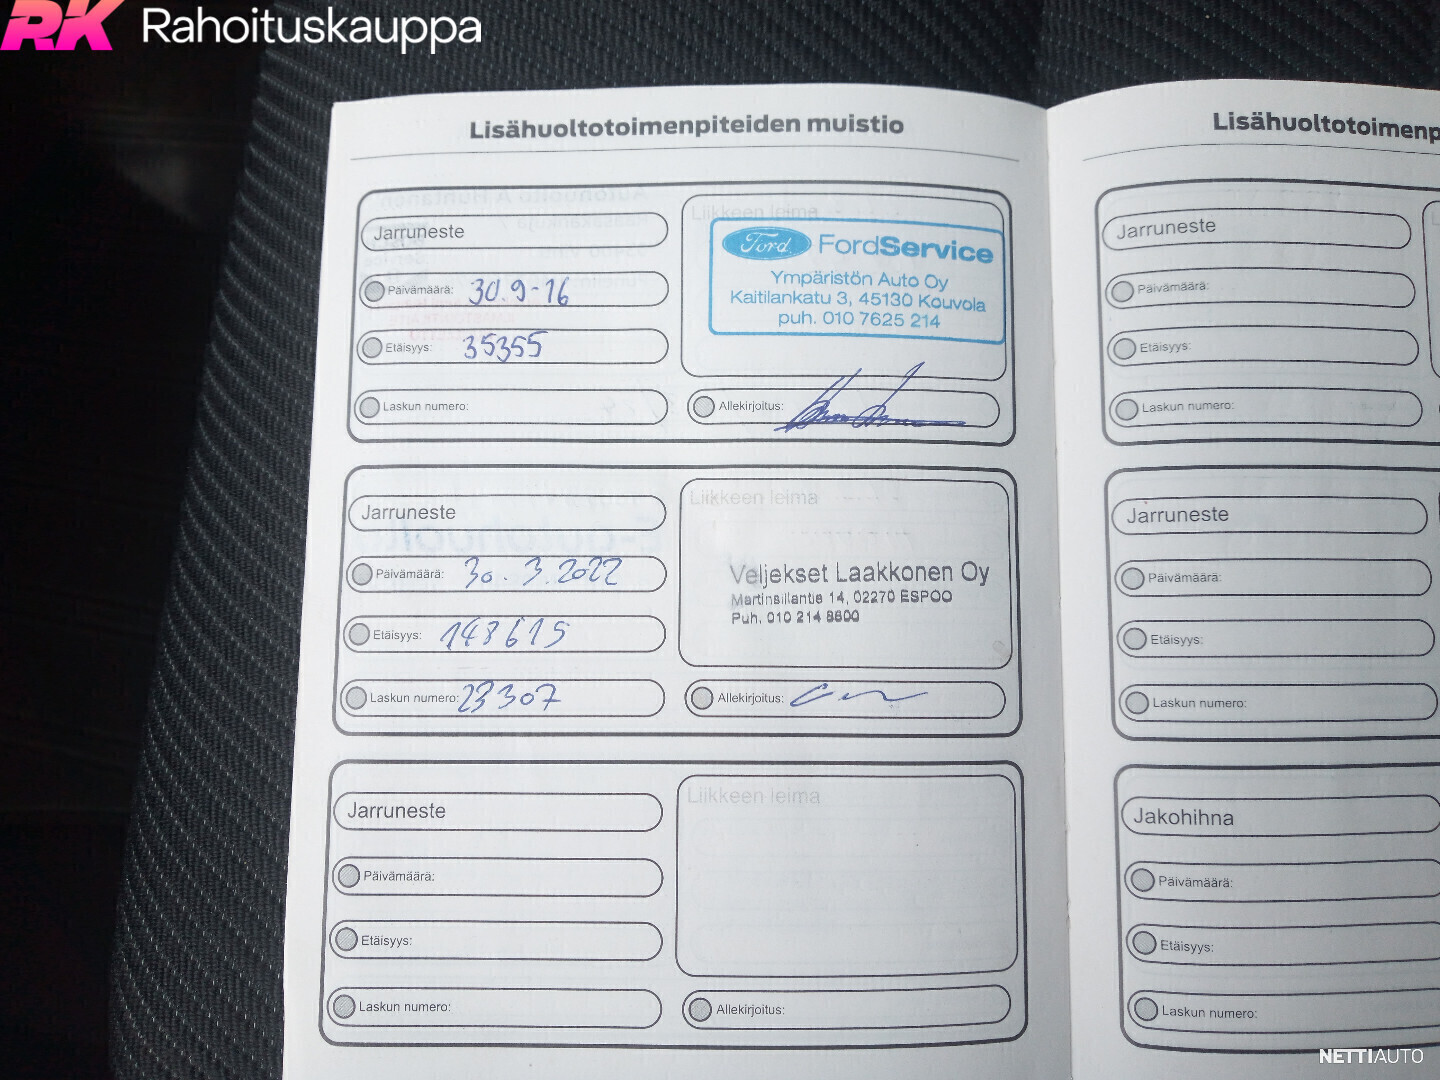 RK Rahoituskauppa
Lisähuoltotoimenpiteiden muistio
Jarruneste
Päivämäärä: 30.9-16
Etäisyys: 35355
Laskun numero:
Liikkeen leima
Ford FordService
Ympäristön Auto Oy
Kaitilankatu 3, 45130 Kouvola
puh. 010 7625 214
Allekirjoitus:
Jarruneste
Päivämäärä: 30.3.2022
Etäisyys: 148615
Laskun numero: 23307
Liikkeen leima
Veljekset Laakkonen Oy
Martinsillantie 14, 02270 ESPOO
Puh. 010 214 8600
Allekirjoitus:
Jarruneste
Päivämäärä:
Etäisyys:
Laskun numero:
Liikkeen leima
Allekirjoitus:
Lisähuoltotoimenp
Jarruneste
Päivämäärä:
Etäisyys:
Laskun numero:
Jarruneste
Päivämäärä:
Etäisyys:
Laskun numero:
Jakohihna
Päivämäärä:
Etäisyys:
Laskun numero:
NETTIAUTO